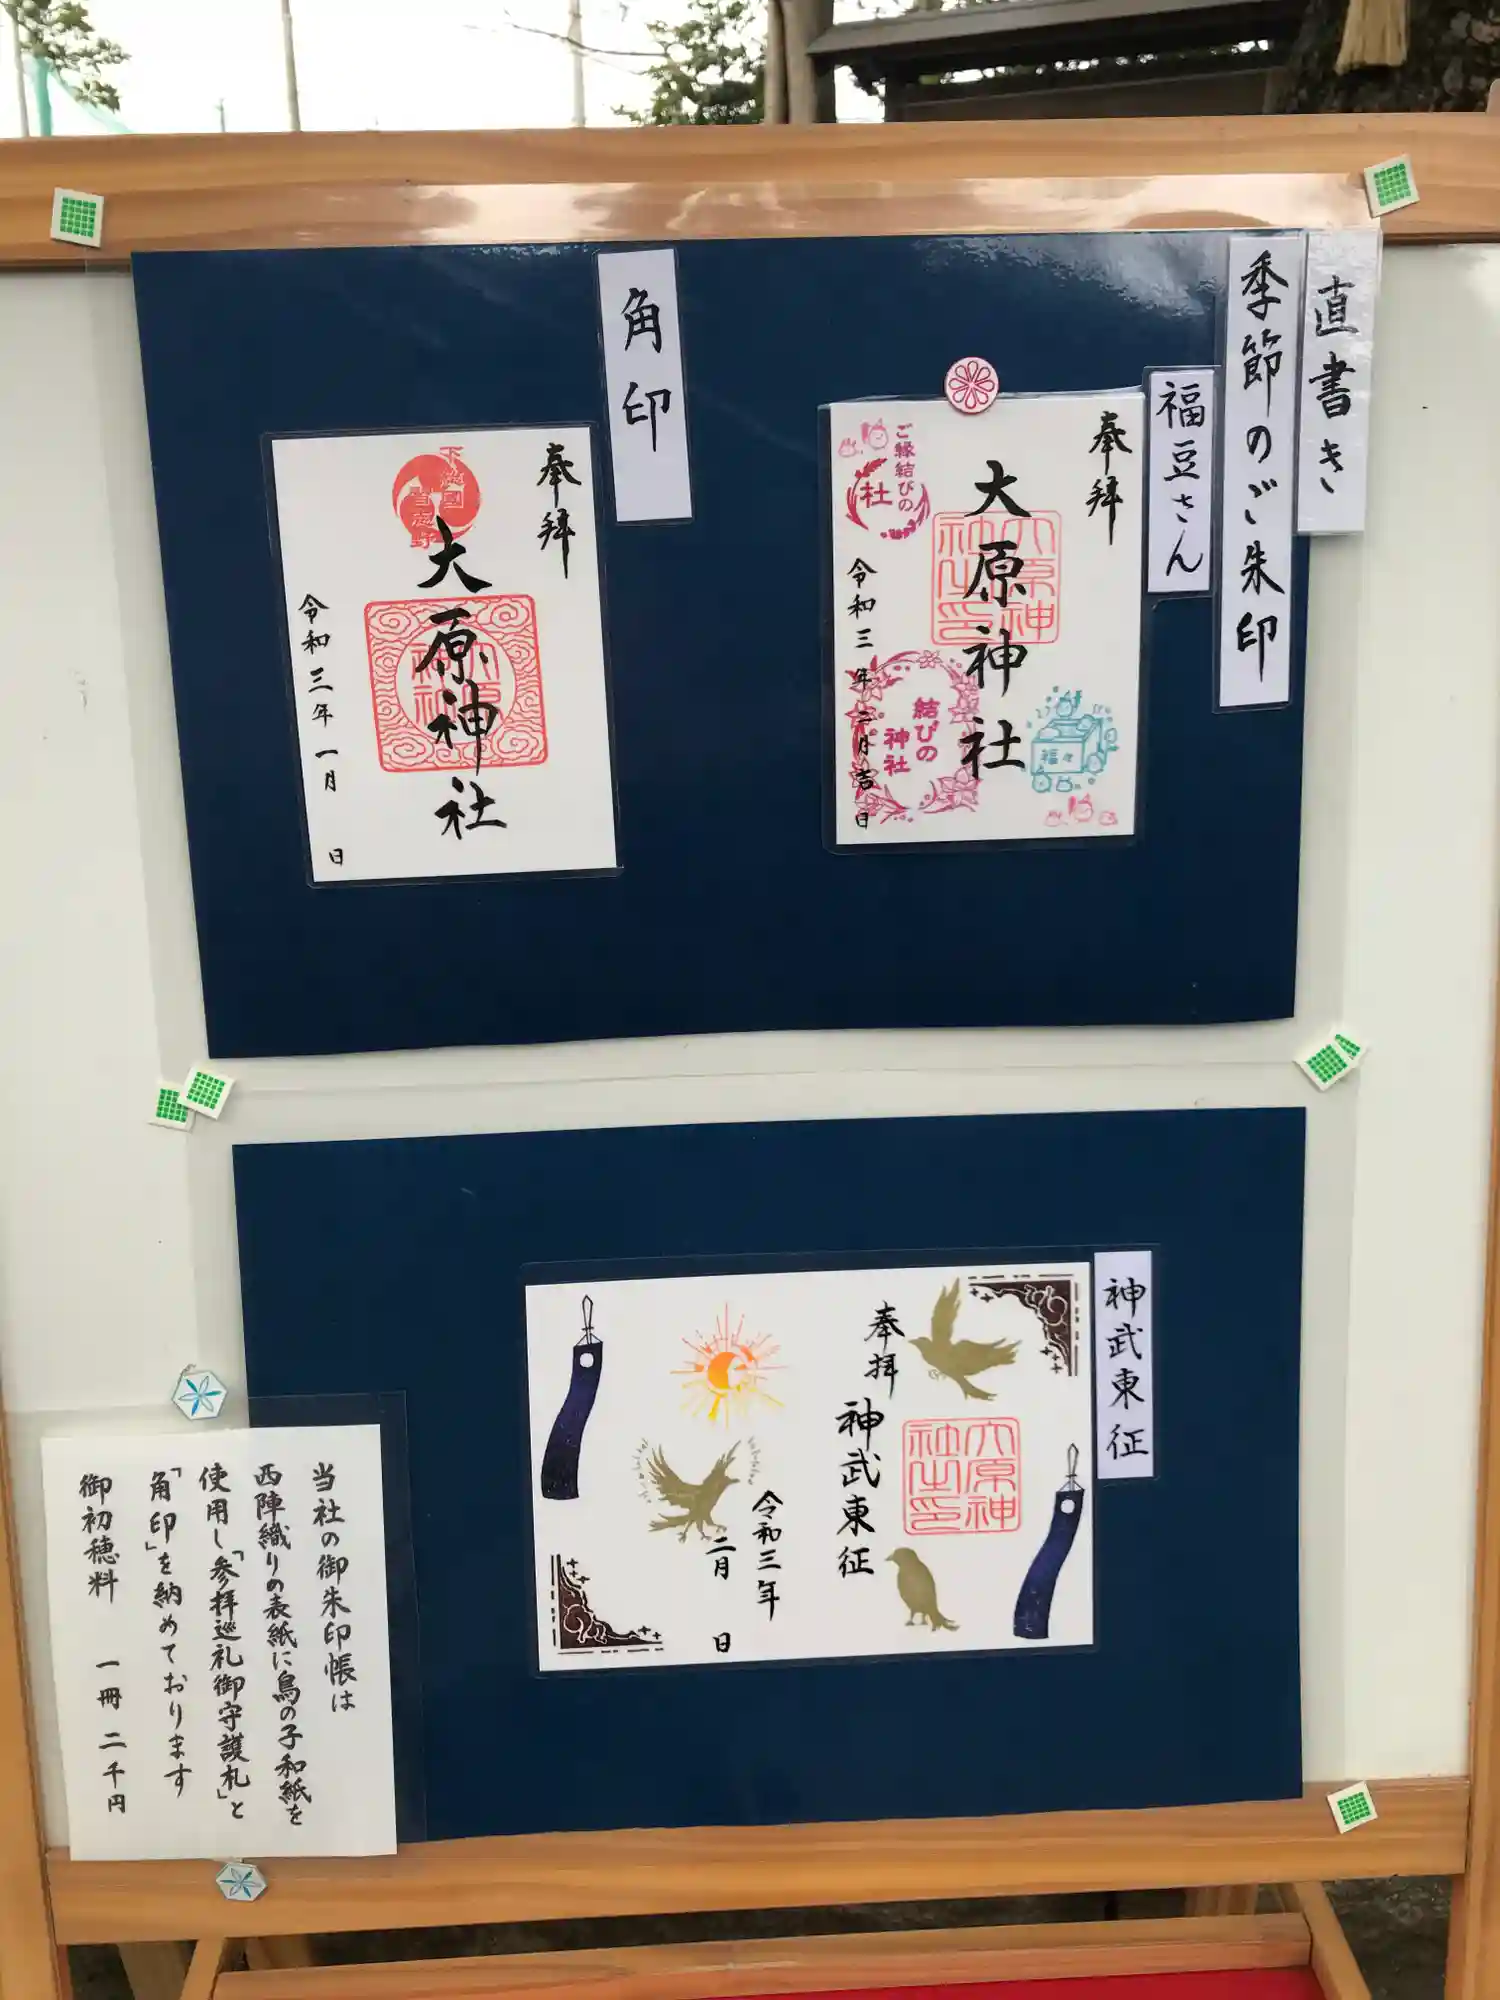 直書き
季節のご朱印
福豆さん
奉拝
大原神社
令和三年二月吉日
ご縁結びの
社
結びの
神社
福々
角印
奉拝
下総國
大原神社
令和三年一月 日
神武東征
奉拝
神武東征
令和三年
二月 日
当社の御朱印帳は
西陣織りの表紙に鳥の子和紙を
使用し「参拝巡礼御守護札」と
「角印」を納めております
御初穂料 一冊 二千円